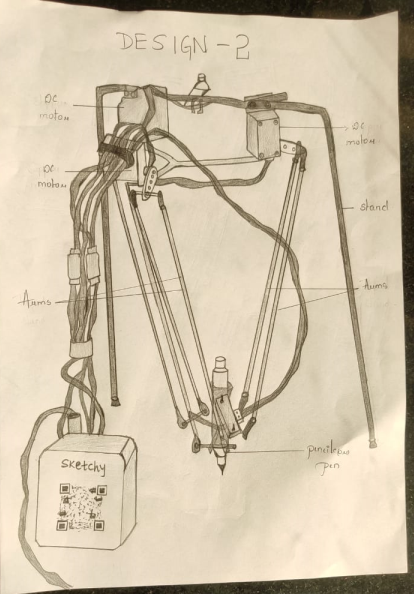 DESIGN - 2
DC
motor
DC
motor
DC
motor
stand
Arms
Arms
pencil or
pen
sketchy